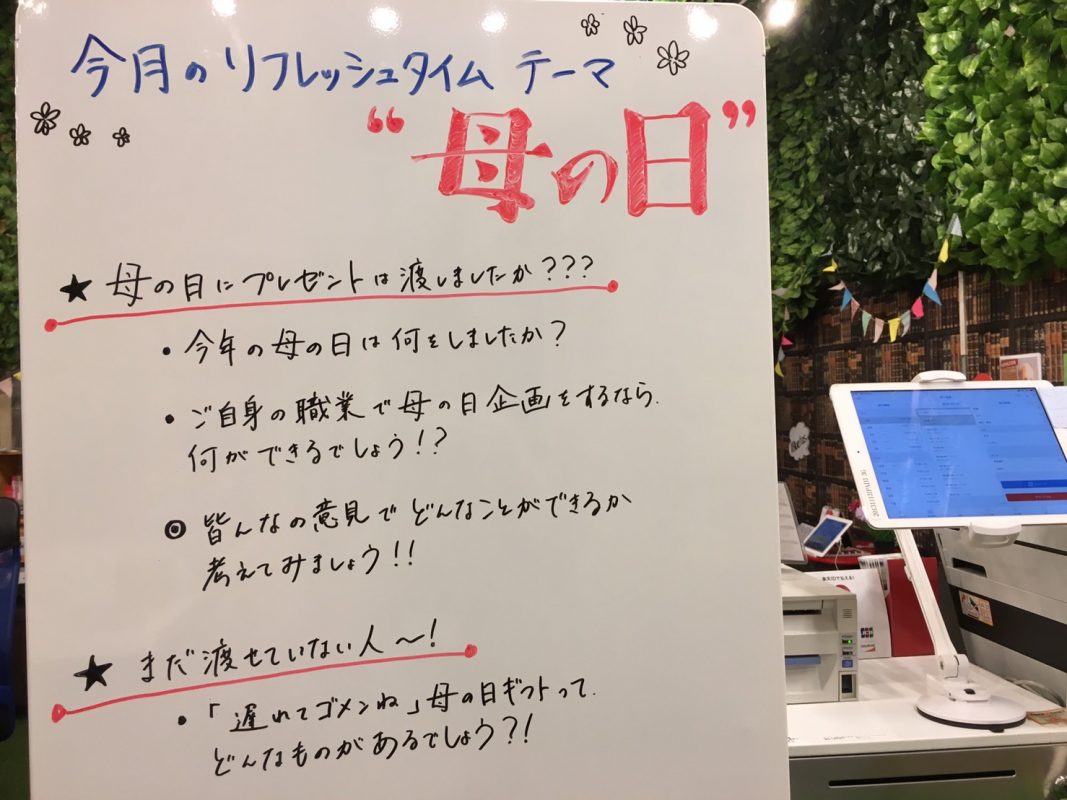 今月のリフレッシュタイム テーマ
“母の日”
★ 母の日にプレゼントは渡しましたか???
・今年の母の日は何をしましたか?
・ご自身の職業で母の日企画をするなら、
何ができるでしょう!?
◎ 皆んなの意見でどんなことができるか
考えてみましょう!!
★ まだ渡せていない人〜!
・「遅れてゴメンね」母の日ギフトって、
どんなものがあるでしょう?!
JCB